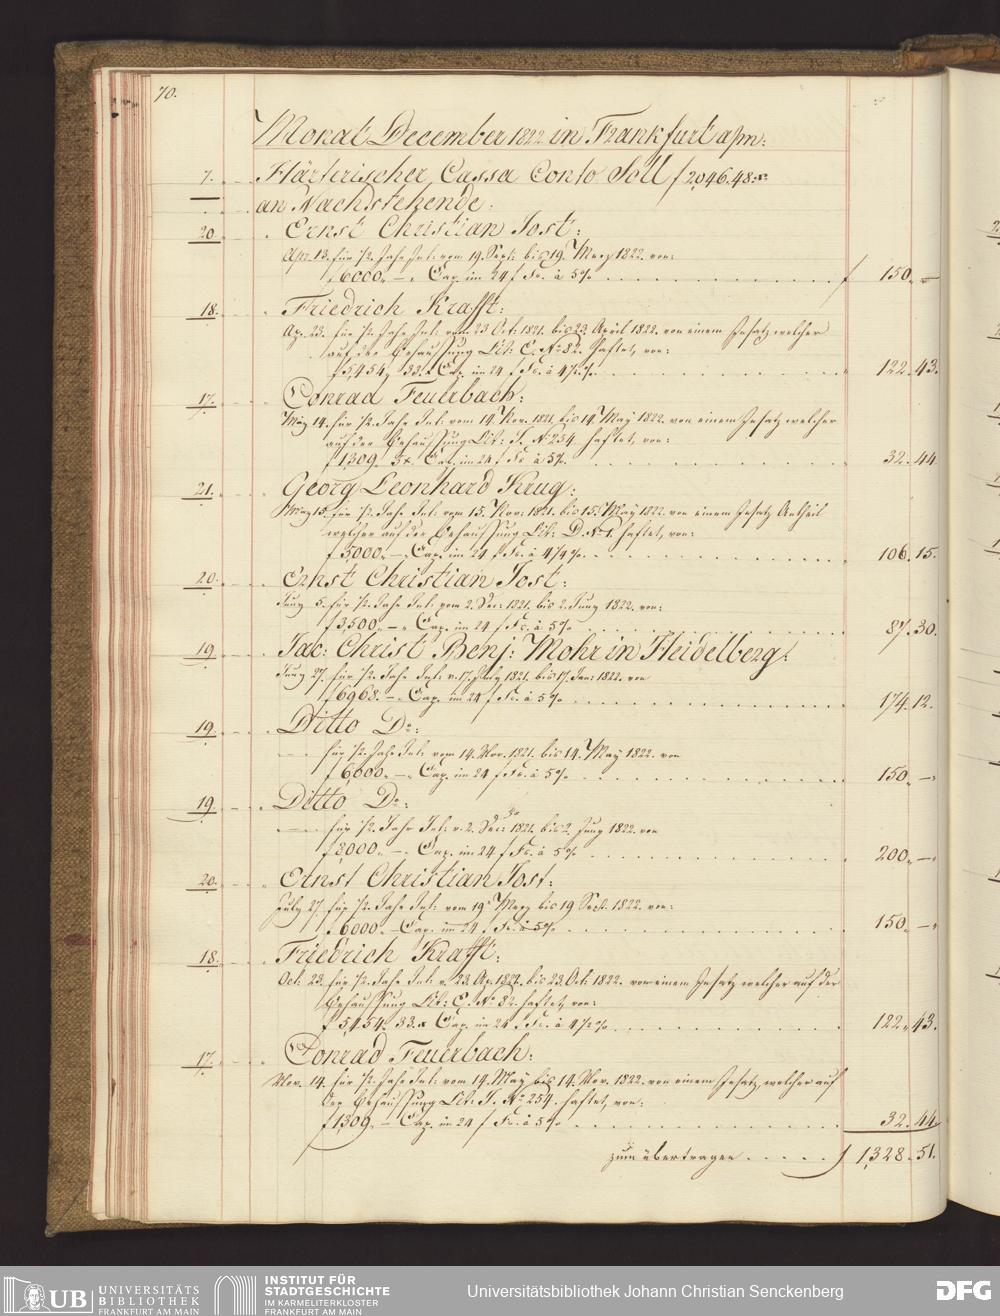 70.
Monat December 1822 in Frankfurt a/m:
7. Härterischer Cassa Conto Soll f 2,046.48 x
an Nachstehende:
20. Ernst Christian Jost:
Apr. 13. für 1/2 Jahr Int: vom 19. Sept: bis 19. März 1822. von:
f 6000.– Cap. im 24 f Fs. à 5% f 150. –
18. Friedrich Krafft:
Ap. 23. für 1/2 Jahr Int: vom 23 Oct: 1821. bis 23. April 1822. von einem Insatz welcher
auf der Behaussung Lit: C. No 82. haftet, von:
f 5,454. 33. x Cap. im 24 f Fs. à 4 1/2 % 122. 43.
17. Conrad Feuerbach:
May 14. für 1/2 Jahr Int: vom 14. Nov. 1821. bis 14. May 1822 von einem Insatz welcher
auf der Behaussung Lit: J. No 254. haftet, von:
f 1309. 5 x. Cap. im 24 f Fs. à 5%. 32. 44.
21. Georg Leonhard Krug:
May 15. für 1/2 Jahr Int: vom 15. Nov: 1821. bis 15. May 1822. von einem Insatz Antheil
welcher auf der Behaussung Lit: D. No 1. haftet, von:
f 5,000.– Cap. im 24 f Fs. à 4 1/4 %. 106. 15.
20. Ernst Christian Jost:
Juny 5. für 1/2 Jahr Int: vom 2. Dec: 1821. bis 2. Juny 1822. von:
f 3,500.– Cap. im 24 f Fs. à 5% 87. 30.
19. Jac: Christ. Benj: Mohr in Heidelberg:
Juny 27. für 1/2 Jahr Int: v. 17. July 1821. bis 17. Jan: 1822. von
f 6968.– Cap. im 24 f Fs. à 5% 174. 12.
19. Ditto Do:
für 1/2 Jahr Int: vom 14. Nov. 1821. bis 14. May 1822 von
f 6,000.– Cap. im 24 f Fs. à 5% 150. –
19. Ditto Do:
für 1/2 Jahr Int: v. 2. Dec: 1821. bis 2. Juny 1822. von
f 8000.– Cap. im 24 f Fs. à 5% 200. –
20. Ernst Christian Jost:
July 27. für 1/2 Jahr Int: vom 19. März bis 19 Sept. 1822. von:
f 6000.– Cap. im 24 f Fs. à 5% 150. –
18. Friedrich Krafft:
Oct: 23. für 1/2 Jahr Int: v. 23. Ap. 1822. bis 23. Oct: 1822. von einem Insatz welcher auf der
Behaussung Lit: C. No 82. haftet, von:
f 5,454. 33. x Cap. im 24 f Fs. à 4 1/2 % 122. 43.
17. Conrad Feuerbach:
Nov. 14. für 1/2 Jahr Int: vom 14. May bis 14. Nov. 1822. von einem Insatz, welcher auf
der Behaussung Lit: J. No 254. haftet, von:
f 1,309.– Cap. im 24 f Fs. à 5% 32. 44
zum übertragen f 1,328. 51.
UB UNIVERSITÄTS BIBLIOTHEK FRANKFURT AM MAIN
INSTITUT FÜR STADTGESCHICHTE IM KARMELITERKLOSTER FRANKFURT AM MAIN
Universitätsbibliothek Johann Christian Senckenberg
DFG